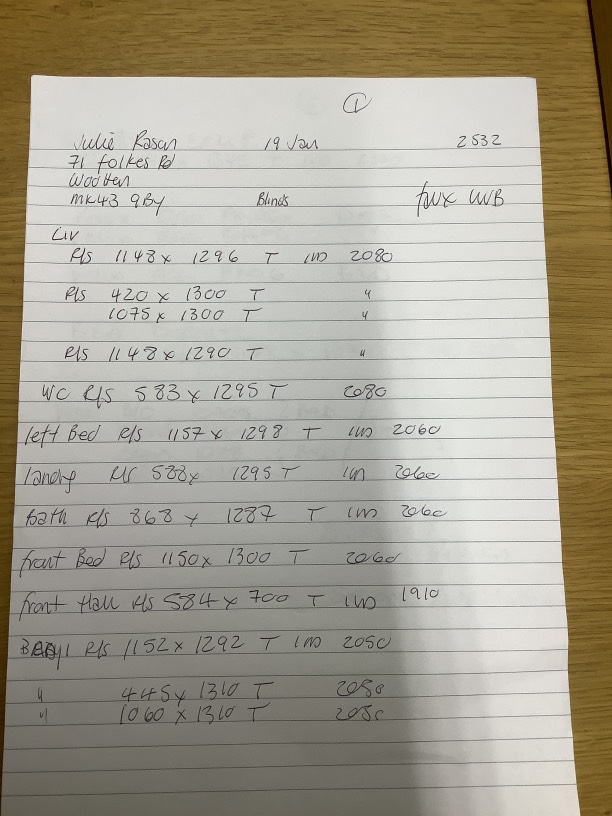 ①
Julie Rosan 19 Jan 2532
71 folkes Rd
Wootten
MK43 9BY Blinds
Liv
R/S 1148 x 1296 T 2080
R/S 420 x 1300 T "
1075 x 1300 T "
R/S 1148 x 1290 T "
WC R/S 583 x 1295 T 2080
left Bed R/S 1157 x 1298 T 2060
landing R/S 588 x 1295 T 2060
bath R/S 868 x 1287 T 2060
front Bed R/S 1150 x 1300 T 2060
front Hall R/S 584 x 700 T 1910
R/S 1152 x 1292 T 2050
" 445 x 1310 T 2050
" 1060 x 1310 T 2050